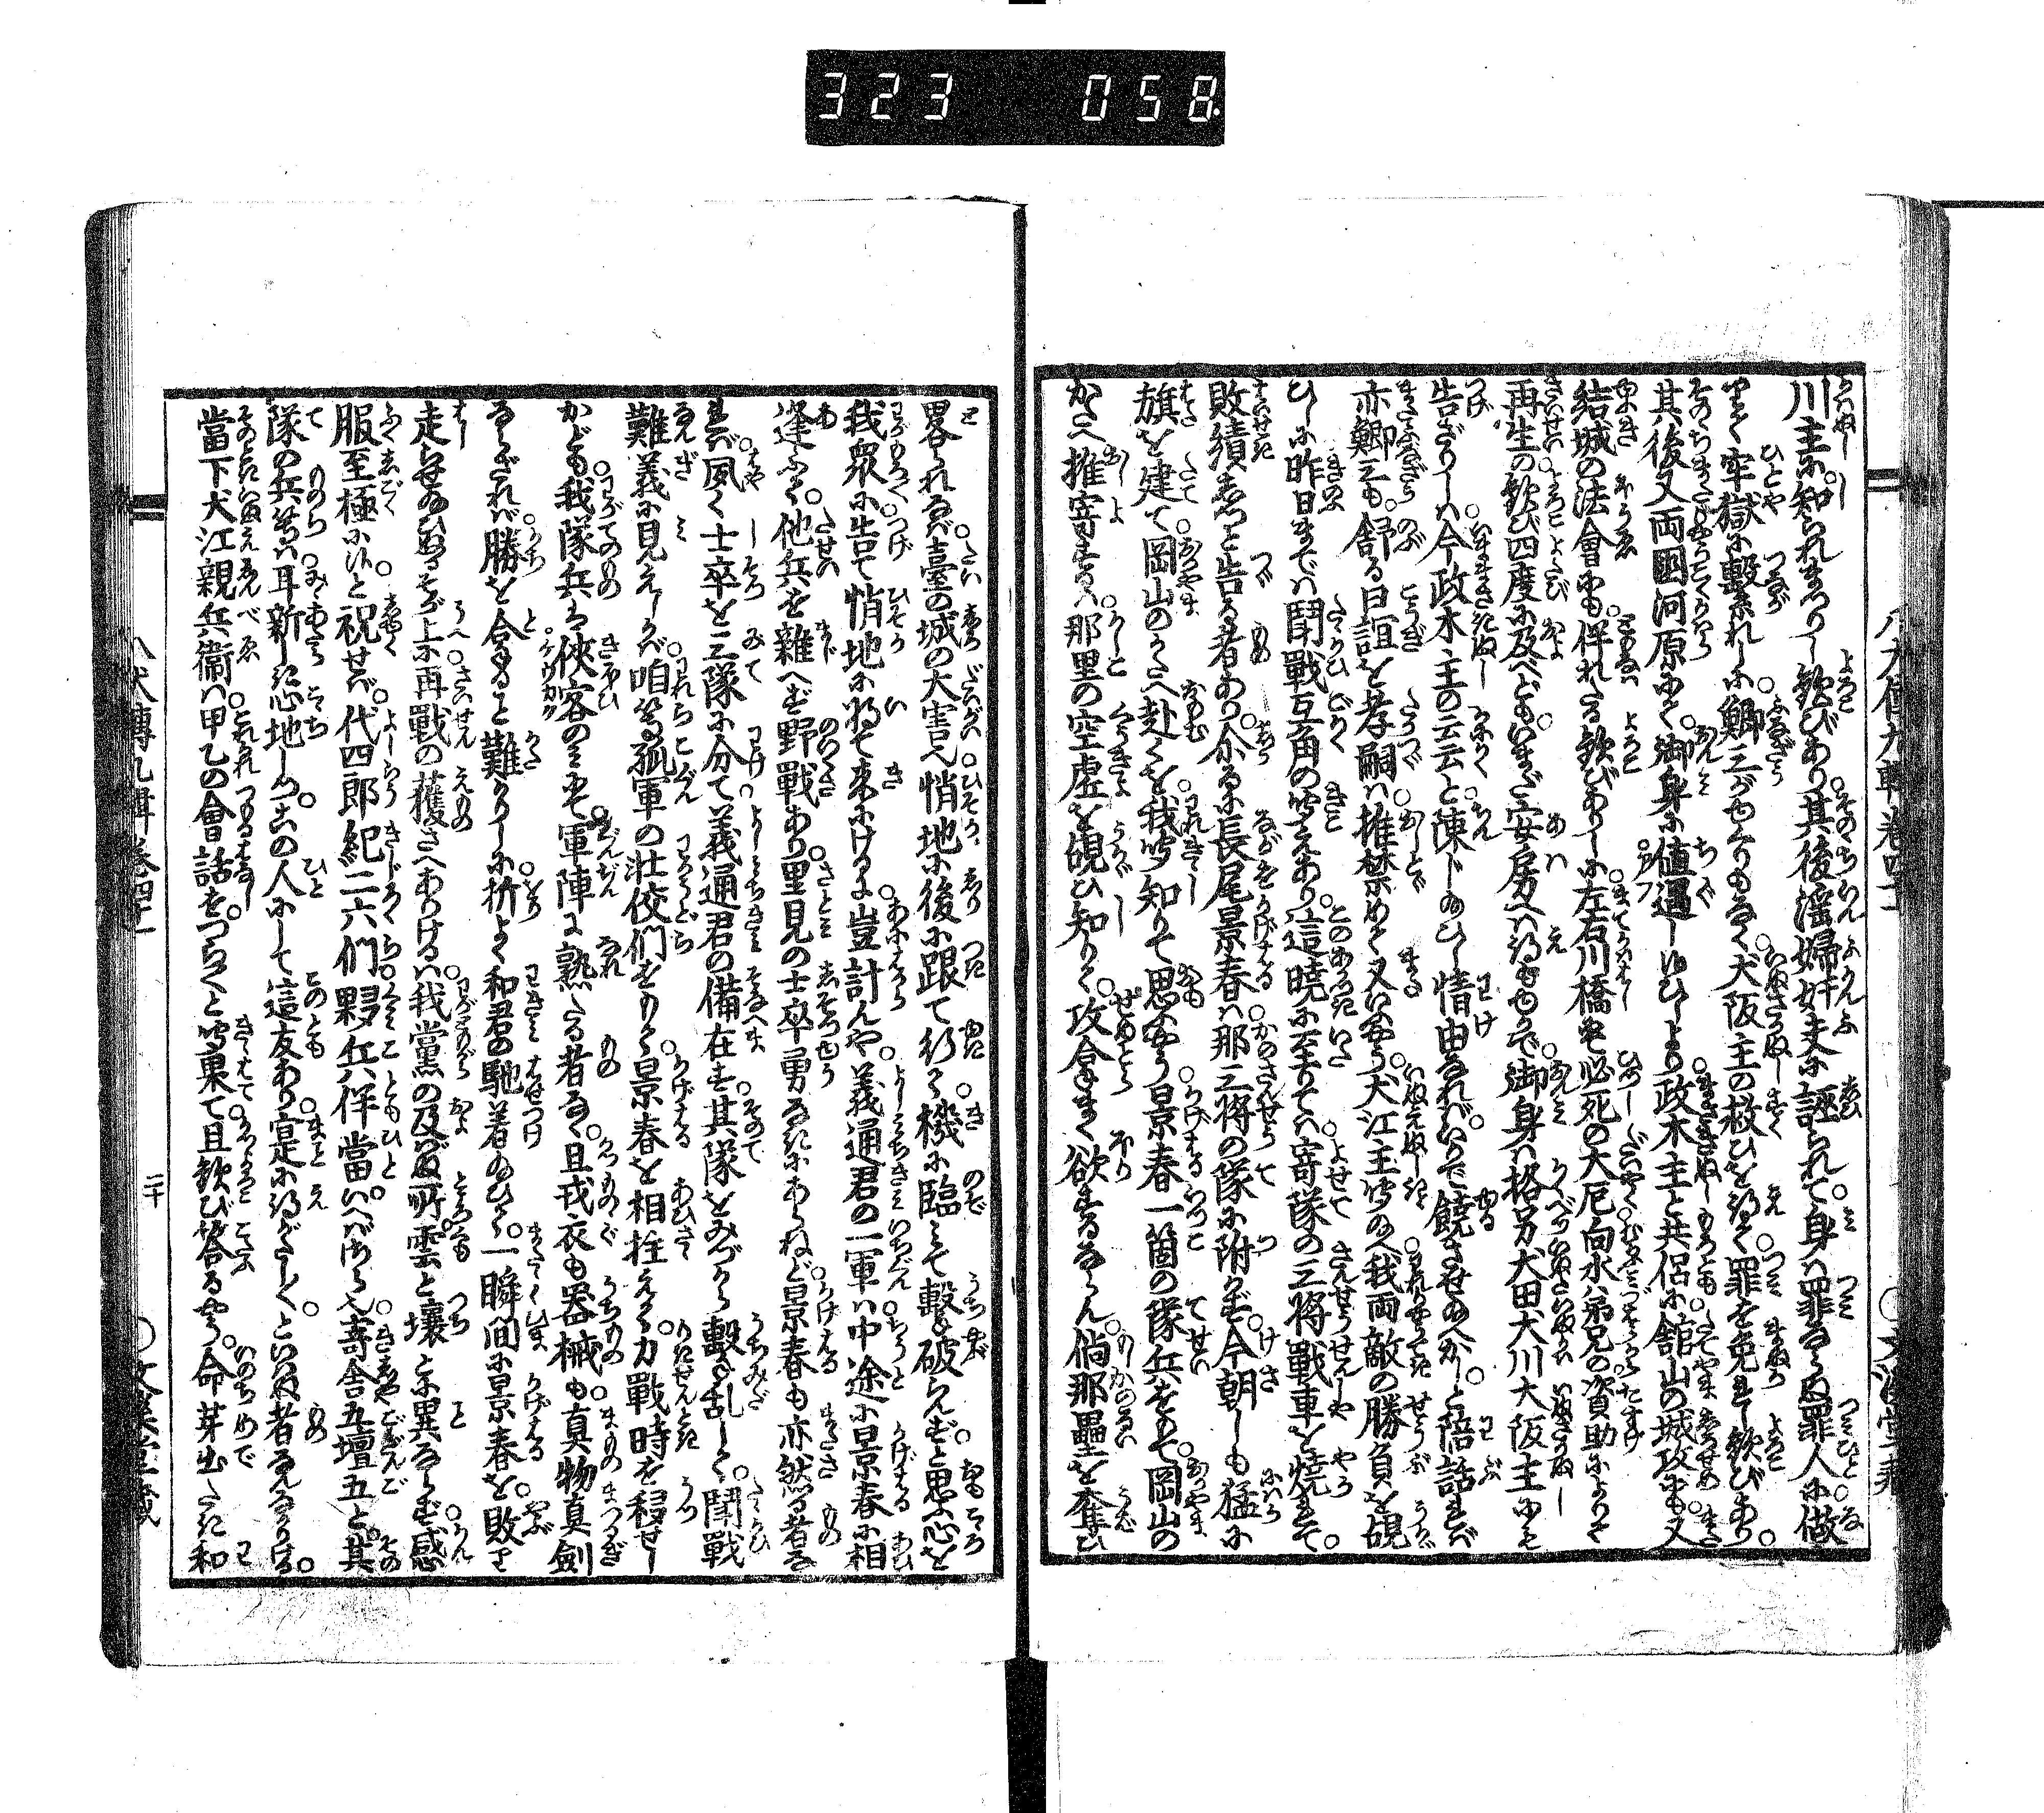 323 058
川主に知られまつりし歓びあり。其後淫婦奸夫に誣られて。身は罪なき罪人に做
りて牢獄に繋れしに。鯽三がちからもて。犬阪主の救ひを得て罪を免れし歓びあり。
其後又両国河原にて。御身に値遇しはひしより。政木主と共侶に。舘山の城攻にも。又
結城の法會にも。伴れたる歓びありしに。左右川橋の必死の大厄。向水弟兄の資助によりて
再生の歓び四度に及べども。いまだ安房へは得もゆかで。御身は格別犬田犬川犬阪主にも
告ざりしは。今政木主の云云と。陳じ給ひし情由なれば。いかで饒させ給へかし。と陪話れば
亦鯽三も。舒る口誼を孝嗣は。推禁めて又いふやう。犬江主聞給へ。我両敵の勝負を覘
ひしに。昨日までは闘戰互角の聞えあり。這暁に至りては。寄隊の三將戰車を焼れて。
敗績しつと告る者あり。介るに長尾景春は。那三將の隊に附かで。今朝しも猛に
旗を建て。岡山のかたへ赴くを。我聞知りて思ふやう。景春一箇の隊兵をもて。岡山の
かたへ推寄するは。那里の空虚を覘ひ知りて。攻合まく欲するならん。倘那壘を奪ひ
畧られなば。臺の城の大害也。悄地に後に跟て行て。機に臨みて撃も破らんず。と思ふ心を
我衆に告て悄地に將て來にけるに。豈計んや。義通君の一軍は。中途に景春に相
逢ふて。他兵を雜へず野戰あり。里見の士卒勇なきにあらねど。景春も亦然る者な
れば。夙く士卒を三隊に分て。義通君の備在す。其隊をみづから撃も乱して。闘戰
難義に見えしかば。咱等孤軍の壮佼們をもて。景春を相拄る。力戰時を移せし
かども。我隊兵は侠客のみにて。軍陣に熟たる者なく。且戎衣も器械も。真物真劍
ならざれば。勝を合ること難かりしに。折よく和君の馳着給ひて。一瞬間に景春を。敗り
走らせ給ひぬる。そが上に再戰の。獲さへありけるは。我黨の及ばぬ所。雲と壌と異ならず。感
服至極に候。と祝せば。代四郎紀二六們。夥兵伴當いへばさら也。寄舎五壇五と。其
隊の兵等は。耳新しき心地しつ。この人にして這友あり。寔に得がたし。といはぬ者なかりける。
當下犬江親兵衛は。甲乙の會話を。つら〱と聞果て。且歓び答るやう。命芽出たき和
八犬傳九輯巻四十一
二十
文溪堂藏